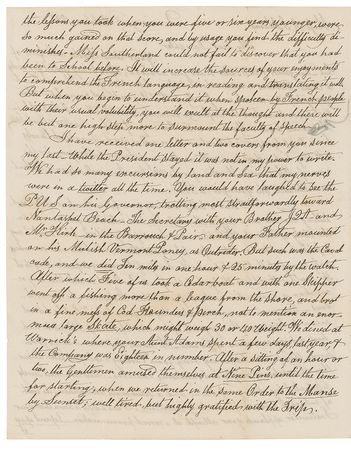 the lessons you took when you were five or six years younger, were
so much gained on that score, and by usage you find the difficulty di-
minished. Miss Southerland could not fail to discover that you had
been to School before. It will increase the sources of your enjoyments
to comprehend the French language, in reading and translating it well.
But when you begin to understand it when spoken by French people
with their usual volubility, you will exult at the thought and there will
be but one high step more to surmount the faculty of speech.
I have received one letter and two covers from you since
my last. While the President stayed it was not in my power to write.
We had so many excursions by land and sea that my nerves
were in a twitter all the time. You would have laughed to see the
P.U.S. on his Governor, trotting most straitforwardly toward
Nantasket Beach. The Secretary with your Brother J.Q.A. and
Mr. Kirk in the Barrouch & Pair and your Father mounted
on his Mulish Vermont Poney, as Outrider. But such was the Caval-
cade, and we did Ten miles in one hour & 25 minutes by the watch.
After which Five of us took a Cedar boat and with one Skipper
went off a fishing more than a league from the shore, and brot
in a fine mess of Cod Haunders & Perch, not to mention an enor-
mous large Skate, which might weigh 30 or 40 Weight. We dined at
Warnick's where your Aunt Adams spent a few days last year, &
the Company was Eighteen in number. After a sitting of an hour or
two, the Gentlemen amused themselves at Nine Pins, until the time
for starting; when we returned in the same Order to the Manse
by Sunset; well tired, but highly gratified with the Trip.